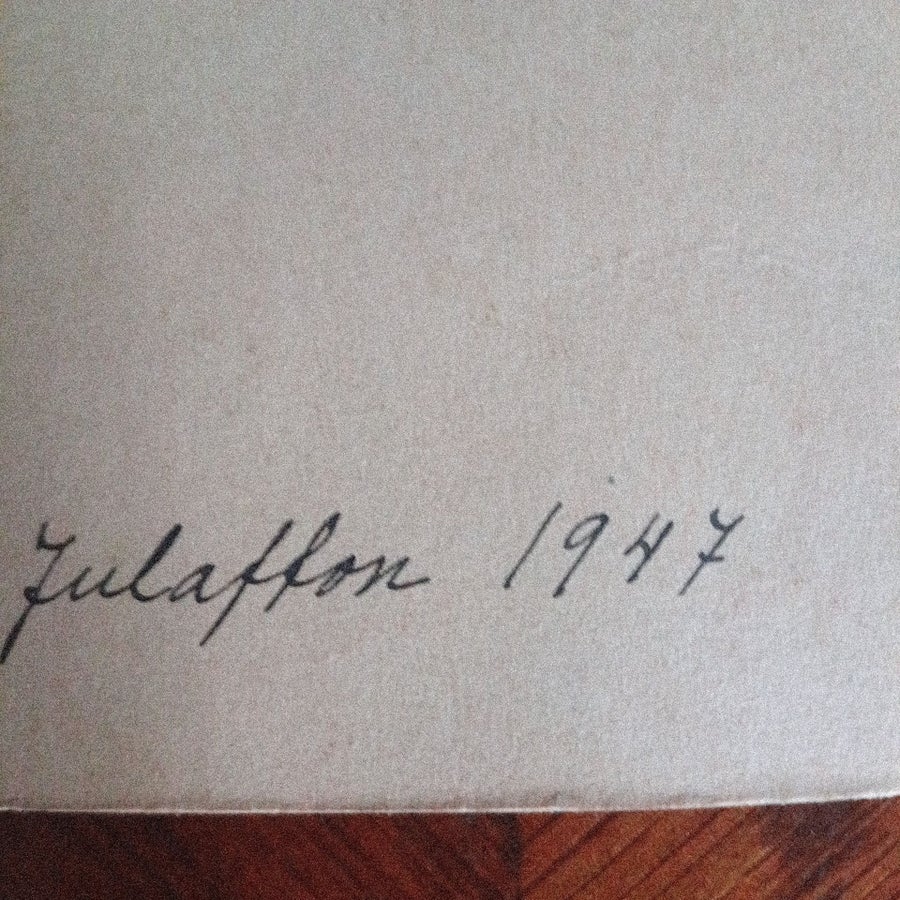 Julafton 1947